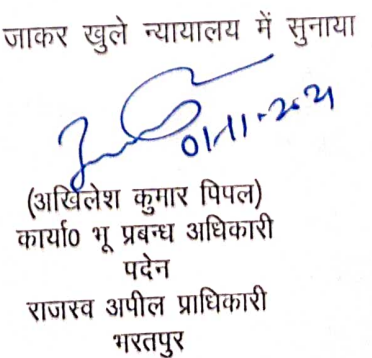 जाकर खुले न्यायालय में सुनाया
01-11-2021
(अखिलेश कुमार पिपल)
कार्या0 भू प्रबन्ध अधिकारी
पदेन
राजस्व अपील प्राधिकारी
भरतपुर